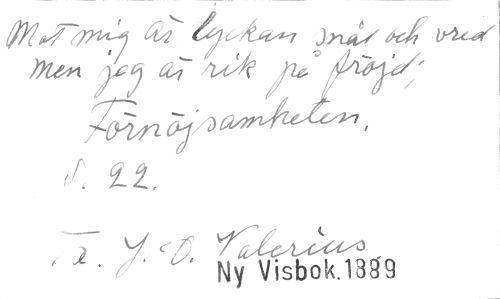 Mot mig är lyckan snål och vred
men jag är rik på fröjd;
Förnöjsamheten.
S. 22.
Fr. J. D. Valerius
Ny Visbok. 1889